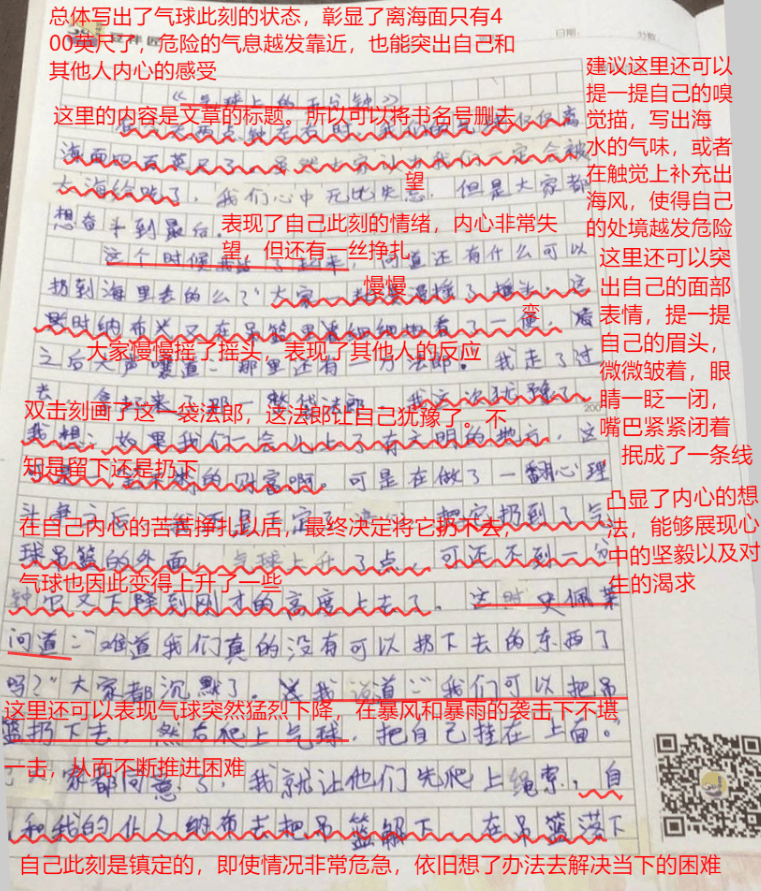 总体写出了气球此刻的状态，彰显了离海面只有4
00英尺了，危险的气息越发靠近，也能突出自己和
其他人内心的感受
日期：
建议这里还可以
提一提自己的嗅
觉描，写出海
水的气味，或者
在触觉上补充出
海风，使得自己
的处境越发危险
《气球上的五分钟》
这里的内容是文章的标题。所以可以将书名号删去
海面四百英尺了。虽然大家认为我们一定会被
大海给吃了，我们心中无比失
望
但是大家都
想奋斗到最后。
表现了自己此刻的情绪，内心非常失
望，但还有一丝挣扎
这个时候我站了起来，问道还有什么可以
这里还可以突
出自己的面部
表情，提一提
自己的眉头，
微微皱着，眼
睛一眨一闭，
嘴巴紧紧闭着
抿成了一条线
扔到海里去的么？”大家
慢慢
摇了摇头。这
是时纳布又在吊篮里
看了一
变
大家慢慢摇了摇头，表现了其他人的反应
之后大声嚷道：那里还有一万法郎。我走了过
去，拿起来了那一整袋法郎，我这次犹豫了，
双击刻画了这一袋法郎，这法郎让自己犹豫了。不
200
我想：如果我们一会儿上了有文明的地方，这
知是留下还是扔下
的财富啊。可是在做了一翻心理
凸显了内心的想
法，能够展现心
中的坚毅以及对
生的渴求
在自己内心的苦苦挣扎以后，最终决定将它扔下去，
把它扔到了气
球吊篮的外面，气球上升了点，可还不到一分
气球也因此变得上升了一些
钟它又下降到刚才的高度上去了。这时史佩莱
问道：“难道我们真的没有可以扔下去的东西了
吗？”大家都沉默了。
我说道：“我们可以把吊
这里还可以表现气球突然猛烈下降，在暴风和暴雨的袭击下不堪
篮扔下去，然后爬上气球，把自己挂在上面。”
一击，从而不断推进困难
家都同意了，我就让他们先爬上绳索，自
和我的仆人纳布去把吊篮解下，在吊篮落下
自己此刻是镇定的，即使情况非常危急，依旧想了办法去解决当下的困难